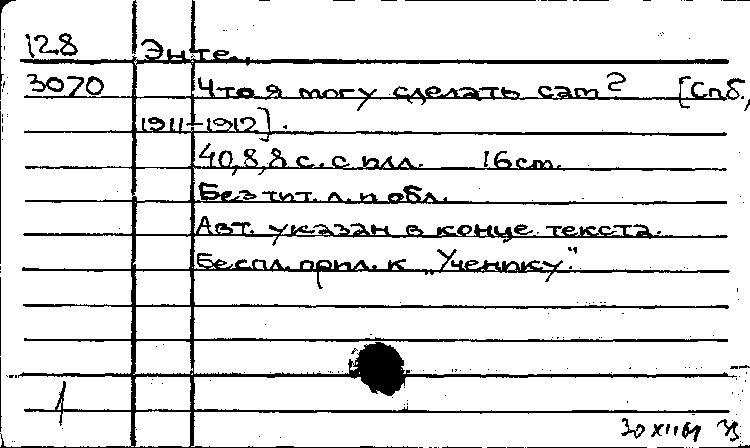 128 Энте.,
3070 Что я могу сделать сам? [Спб.,
1911-1912].
40, 8, 8 с. с илл. 16 cm.
Без тит. л. и обл.
Авт. указан в конце текста.
Беспл. прил. к „Ученику".
1
30 XII 61